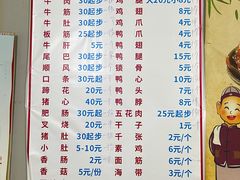 牛肉 30起步 鸡腿 大20元小8元
牛筋 30起步 鸡爪 4元
牛肚 30起步 鸡翅 4元
板筋 25起步 鸭爪 4元
牛肝 5元 鸭翅 4元
尾巴 30起步 鸭腿
顺风 30起步 锁骨 5元
口条 30元起 鸭心 5元
蹄花 20元 鸭头 7元
猪心 40元 鸭脖 8元
肥肠 30元起步 五花肉 25元起步
叉烧 20元 千子 1元
猪肚 30起步 千张 2元/个
小肚 5-10元 素鸡 6元/个
香肠 2元 面筋 6元/个
香菇 5元/份 海带 3元/个